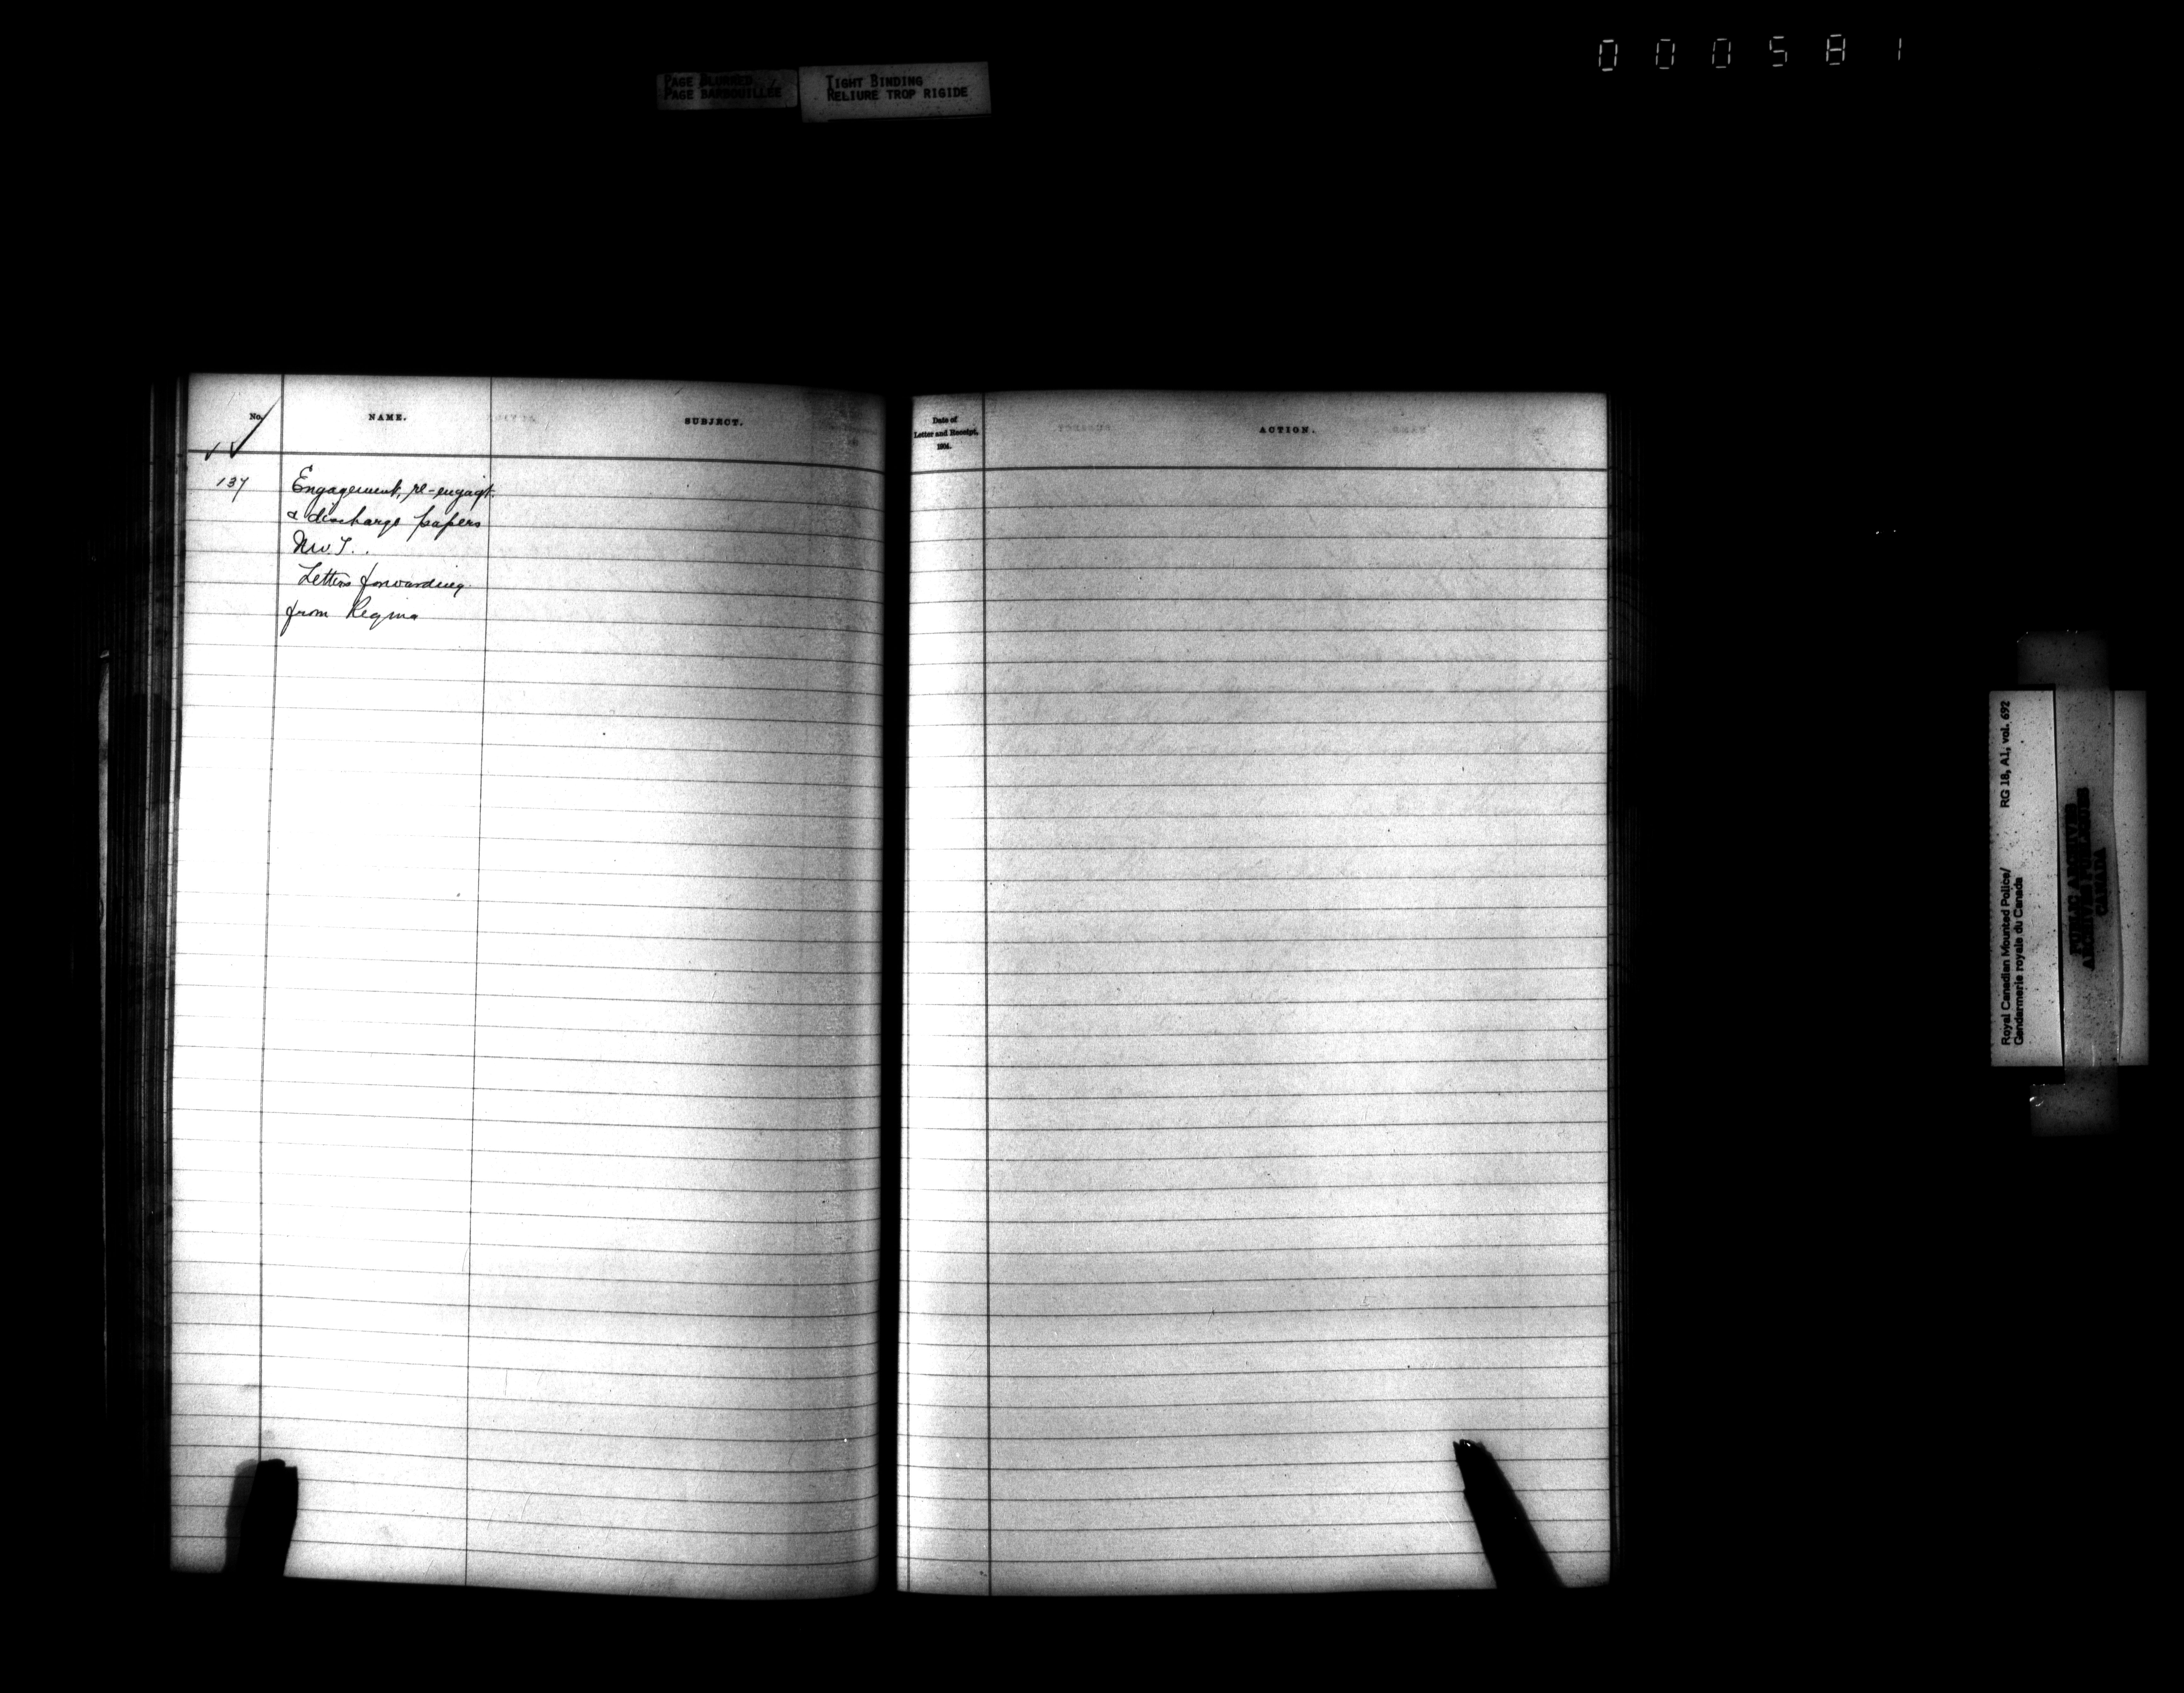 000581
PAGE BLURRED
PAGE BARBOUILLÉE
TIGHT BINDING
RELIURE TROP RIGIDE
No.
NAME.
SUBJECT.
137
Engagement, re-engagt.
& discharge papers
N.W.T..
Letters forwarding
from Regina
Date of
Letter and Receipt,
1904.
ACTION.
Royal Canadian Mounted Police/
Gendarmerie royale du Canada
RG 18, A1, vol. 692
PUBLIC ARCHIVES
ARCHIVES PUBLIQUES
CANADA